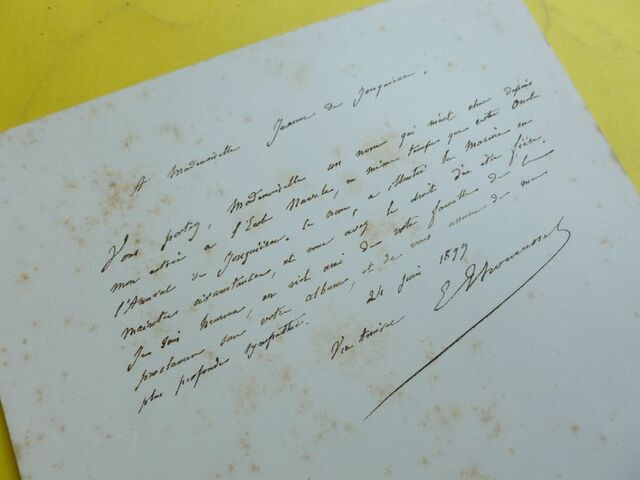 A Mademoiselle Jeanne de Jonquières.
Vous portez, Mademoiselle un nom qui m'est cher depuis
mon entrée à l'École Navale, en même temps que votre Oncle
l'Amiral de Jonquières. Ce nom, a illustré la Marine en
maintes circonstances, et vous avez le droit d'en être fière.
Je suis heureux, en vieil ami de votre famille de le
proclamer sur votre album, et de vous assurer de ma
plus profonde sympathie. 24 Juin 1899
Vice Amiral